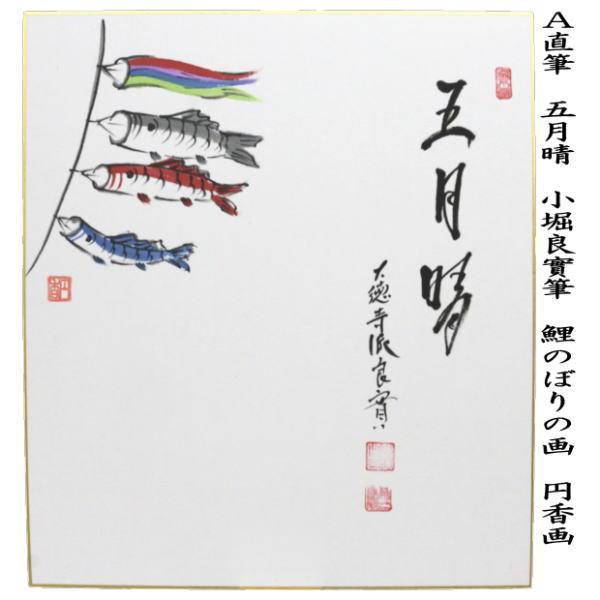 A直筆 五月晴 小堀良實筆 鯉のぼりの画 円香画
五月晴
大徳寺派良實